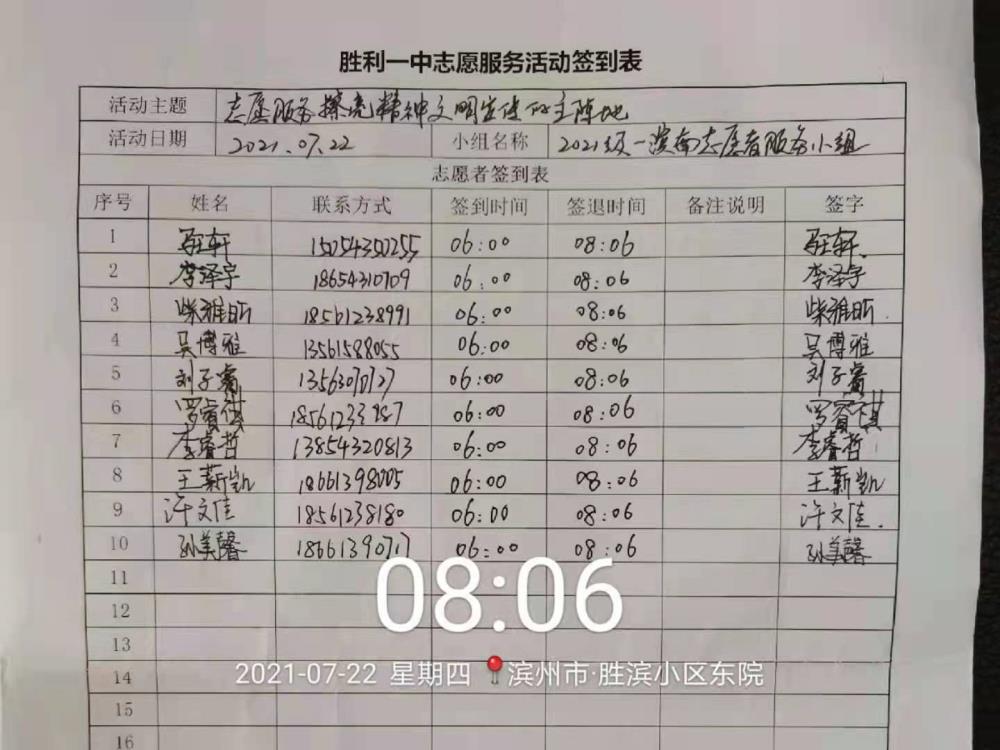 胜利一中志愿服务活动签到表
活动主题 志愿服务擦亮精神文明宣传的主阵地
活动日期 2021.07.22 小组名称 2021级一滨南志愿者服务小组
志愿者签到表
序号 姓名 联系方式 签到时间 签退时间 备注说明 签字
1 轩 15054350255 06:00 08:06 轩
2 李泽宇 18654310709 06:00 08:06 李泽宇
3 柴雅昕 18561238991 06:00 08:06 柴雅昕
4 吴博雅 13561588055 06:00 08:06 吴博雅
5 刘子睿 06:00 08:06 刘子睿
6 罗 06:00 08:06 罗
7 李睿哲 13854320813 06:00 08:06 李睿哲
8 王薪凯 18661398005 06:00 08:06 王薪凯
9 许文佳 18561238180 06:00 08:06 许文佳
10 孙美馨 18661390717 06:00 08:06 孙美馨
11
08:06
12
13
2021-07-22 星期四 滨州市·胜滨小区东院
14
15
16